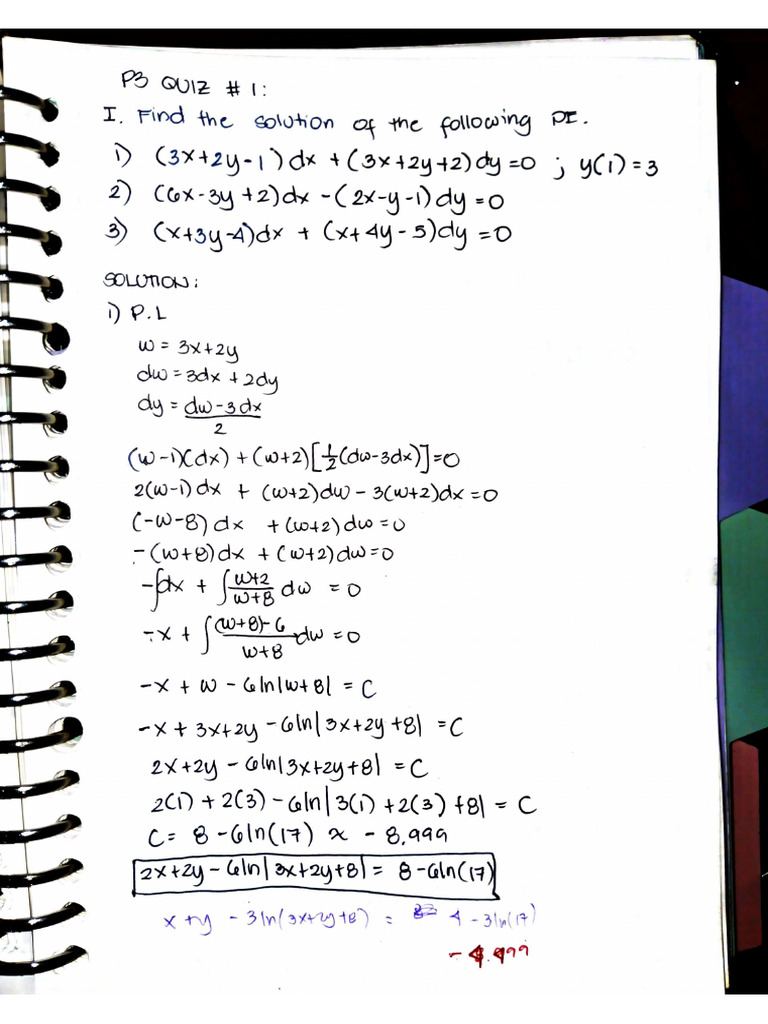 P3 QUIZ # 1:
I. Find the solution of the following DE.
1) (3x+2y-1)dx + (3x+2y+2)dy=0 ; y(1)=3
2) (6x-3y+2)dx -(2x-y-1)dy=0
3) (x+3y-4)dx + (x+4y-5)dy=0
SOLUTION:
1) P.L
w = 3x+2y
dw=3dx+2dy
dy = dw-3dx
2
(w-1)(dx)+(w+2)[½(dw-3dx)]=0
2(w-1)dx + (w+2)dw-3(w+2)dx=0
(-w-8)dx +(w+2)dw=0
-(w+8)dx+(w+2)dw=0
-∫dx + ∫ w+2/w+8 dw = 0
-x + ∫ (w+8)-6/w+8 dw = 0
-x + w - 6ln|w+8| = C
-x + 3x+2y -6ln|3x+2y+8| =C
2x+2y - 6ln|3x+2y+8| = C
2(1) + 2(3) - 6ln|3(1) +2(3) +8| = C
C= 8-6ln(17) ≈ -8.999
2x+2y-6ln|3x+2y+8|= 8-6ln(17)
x+y -3ln(3x+2y+8) = 4 -3ln(17)
-4.499